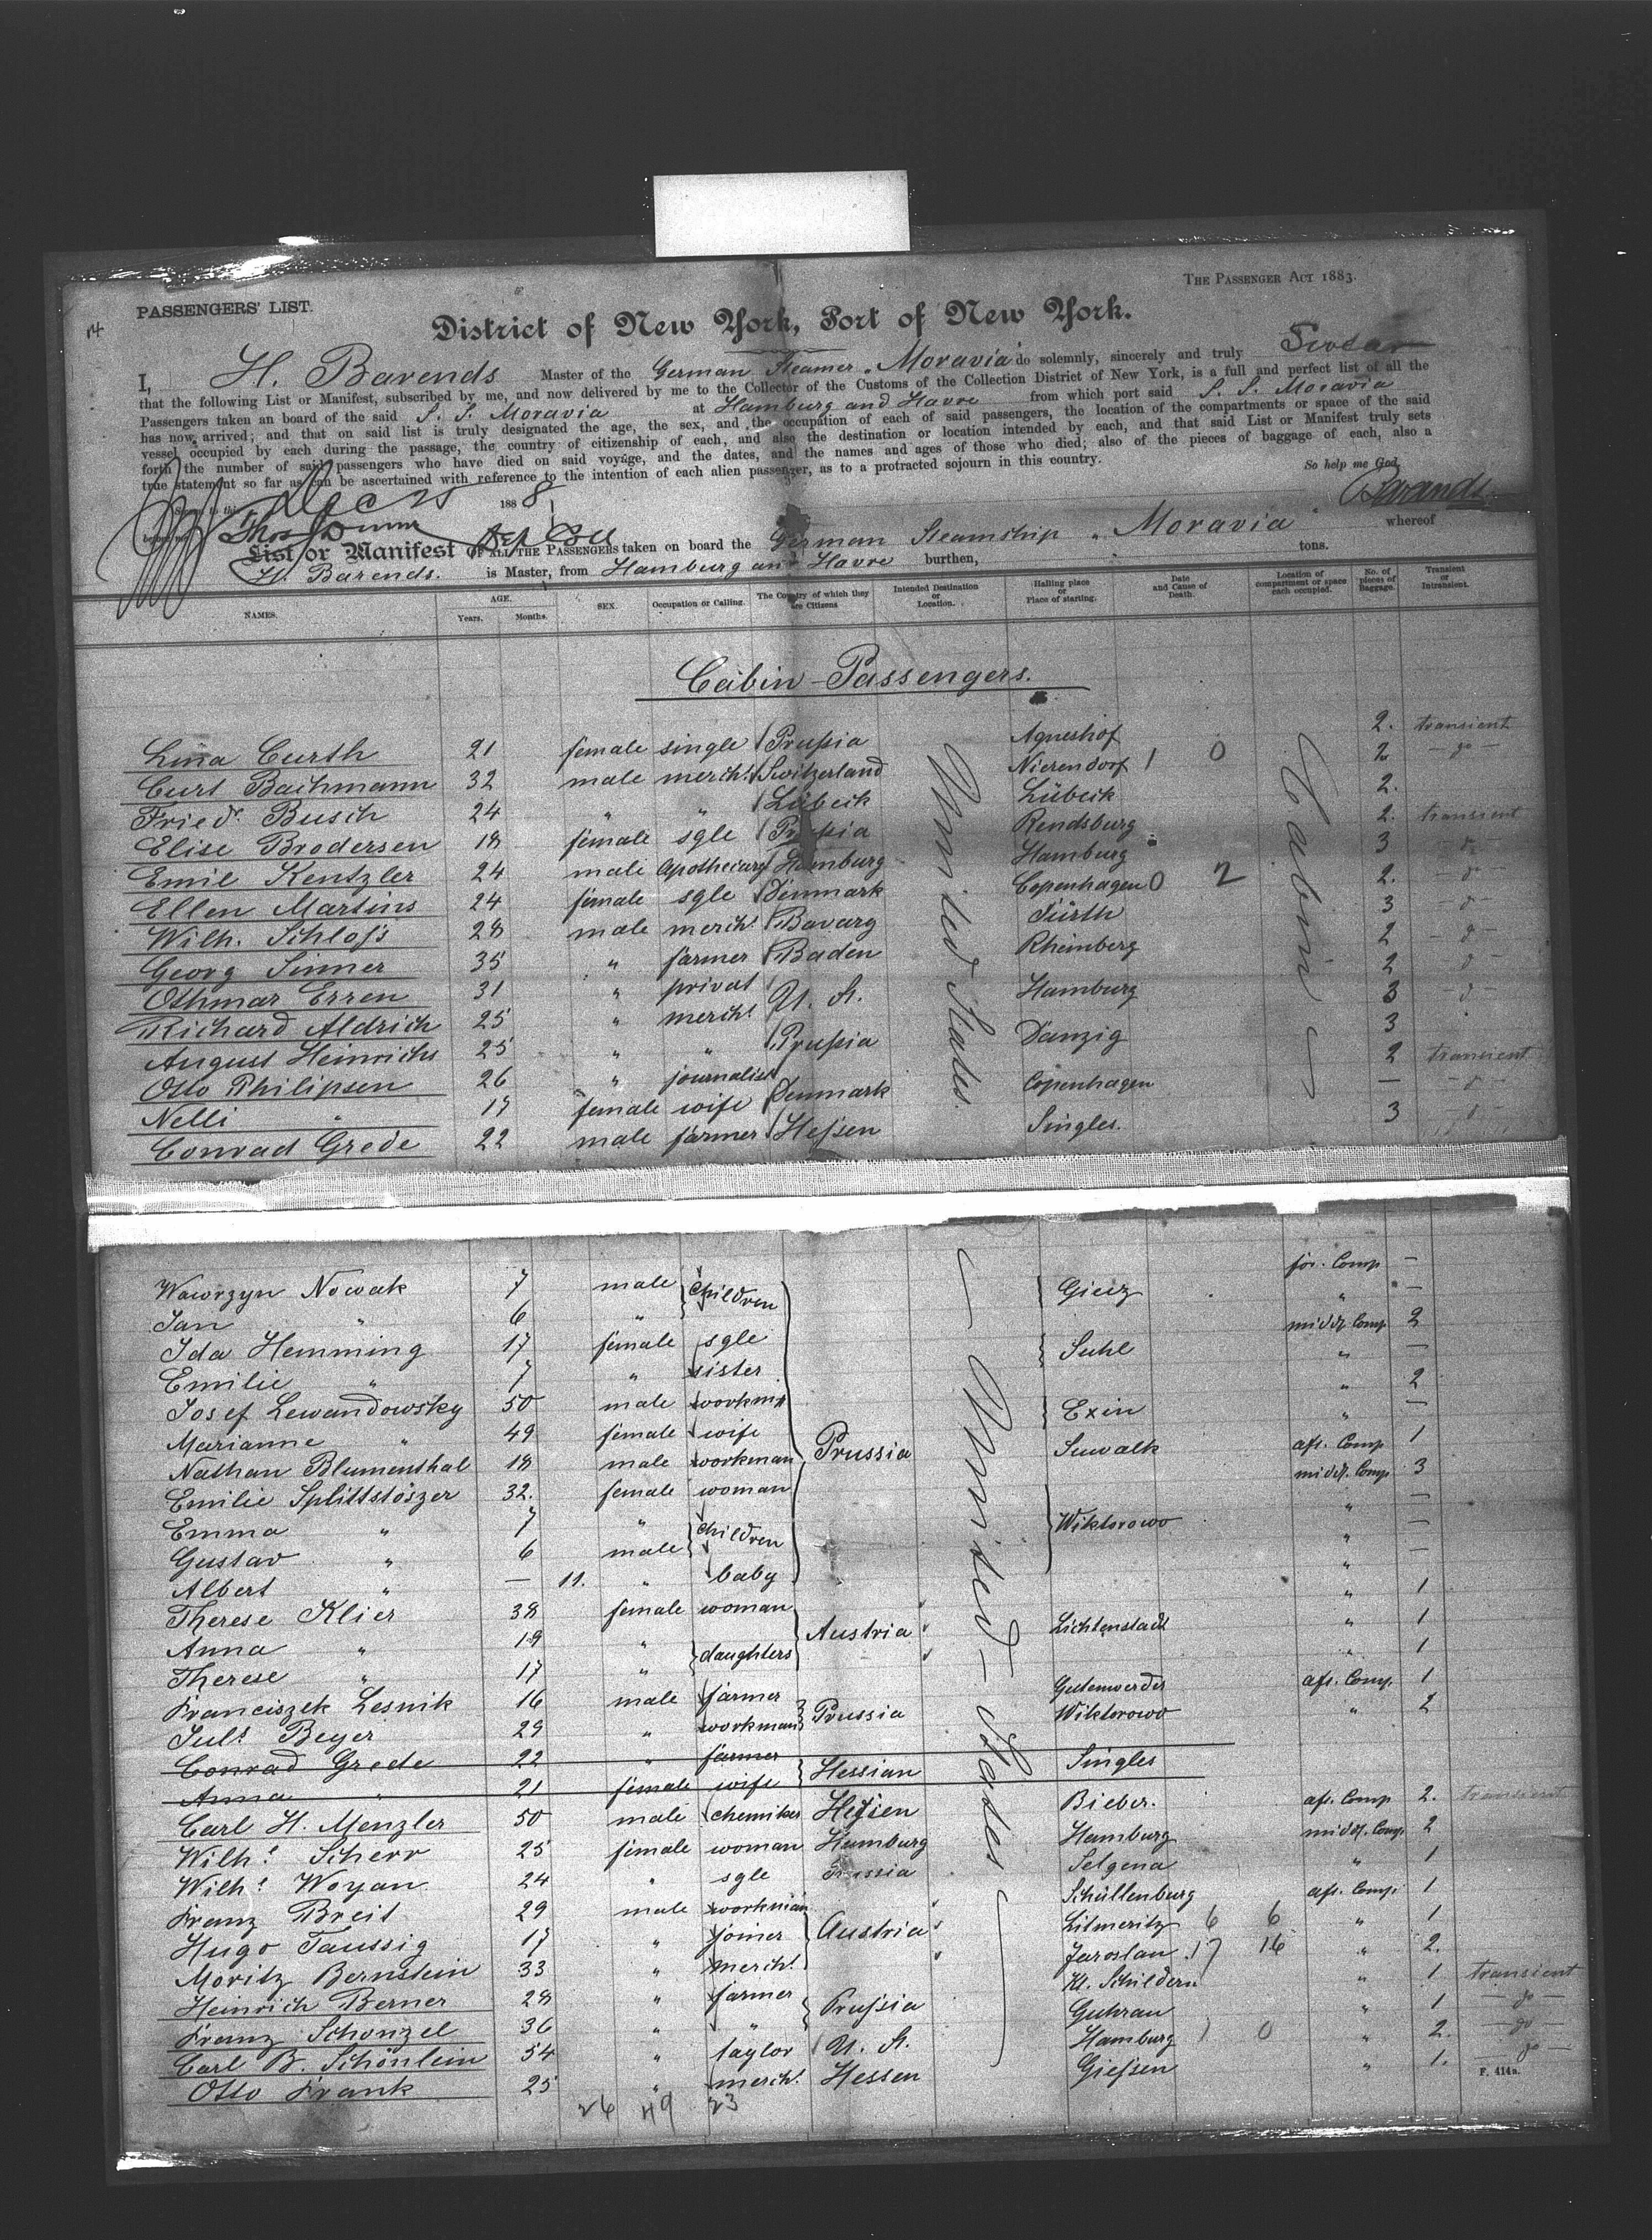 THE PASSENGER ACT 1883.
PASSENGERS' LIST.
14
District of New York, Port of New York.
I, H. Barends Master of the German Steamer „Moravia" do solemnly, sincerely and truly Swear
that the following List or Manifest, subscribed by me, and now delivered by me to the Collector of the Customs of the Collection District of New York, is a full and perfect list of all the
Passengers taken an board of the said S. S. Moravia at Hamburg and Havre from which port said S. S. Moravia
has now arrived; and that on said list is truly designated the age, the sex, and the occupation of each of said passengers, the location of the compartments or space of the said
vessel occupied by each during the passage, the country of citizenship of each, and also the destination or location intended by each, and that said List or Manifest truly sets
forth the number of said passengers who have died on said voyage, and the dates, and the names and ages of those who died; also of the pieces of baggage of each, also a
true statement so far as can be ascertained with reference to the intention of each alien passenger, as to a protracted sojourn in this country.
So help me God,
Sworn to this Dec 25 1888 Barends
before me
List or Manifest OF ALL THE PASSENGERS taken on board the German Steamship „Moravia" whereof
H. Barends. is Master, from Hamburg and Havre burthen, tons.
NAMES. AGE. Years. Months. SEX. Occupation or Calling. The Country of which they are Citizens Intended Destination or Location. Halting place or Place of starting. Date and Cause of Death. Location of compartment or space each occupied. No. of pieces of Baggage. Transient or Intransient.
Cabin-Passengers.
Lina Curth 21 female single Prussia Agneshof 2. transient
Curt Bachmann 32 male mercht. Switzerland Nierendorf 1 0 2. - do -
Friedr. Busch 24 " " Lübeck Lübeck 2.
Elise Brodersen 18 female sgle Prussia Rendsburg 2. transient
Emil Kentzler 24 male Apothecary Hamburg Hamburg 3 - do
Ellen Martins 24 female sgle Denmark Copenhagen 0 2 2. - do -
Wilh. Schloss 28 male mercht. Bavarg Fürth 3 - do -
Georg Sinner 35 " farmer Baden Rheinberg 2 - do -
Othmar Erren 31 " privat 2 - do -
Richard Aldrich 25 " mercht. U. St. Hamburg 3 - do -
August Heinrichs 25 " " Prussia Danzig 3
Otto Philipsen 26 " journalist 2 transient
Nelli " 19 female wife Denmark Copenhagen — - do -
Conrad Grede 22 male farmer Hessen Singles. 3
United States.
Cabin
Wawrzyn Nowak 7 male children Gieiz for. Comp —
Jan " 6 " " —
Ida Hemming 17 female sgle Suhl middl. Comp 2
Emilie " 7 " sister " —
Josef Lewandowsky 50 male workmn Exin " 2
Marianne " 49 female wife " —
Nathan Blumenthal 18 male workman Prussia Suwalk aft. Comp 1
Emilie Splittstöszer 32. female woman middl. Comp 3
Emma " 7 " children Wiktorowo " —
Gustav " 6 male " —
Albert " — 11. " baby " —
Therese Klier 38 female woman " 1
Anna " 19 " daughters Austria Lichtenstadt " 1
Therese " 17 " " 1
Franciszek Lesnik 16 male farmer Gutenwerder aft. Comp. 1
Juls. Beyer 29 " workman Prussia Wiktorowo " 2
Conrad Grede 22 " farmer Singles
Anna " 21 female wife Hessian
Carl H. Menzler 50 male chemiker Hessen Bieber. aft. Comp 2. transient
Wilhe. Scherr 25 female woman Hamburg Hamburg middl. Comp 2
Wilhe. Woyan 24 " sgle Prussia Selgena " 1
Franz Breit 29 male workman Schüllenburg aft. Comp. 1
Hugo Taussig 17 " joiner Austria Litmeritz 6 6 " 1
Moritz Bernstein 33 " mercht. Jaroslau. 17 16 " 2.
Heinrich Berner 28 " farmer Kl. Schildern " 1 transient
Franz Schonzel 36 " " Prussia Guhrau " 1 - do -
Carl B. Schönlein 54 " taylor U. St. Hamburg 1 0 " 2. - do -
Otto Frank 25 " mercht. Hessen Giessen " 1. - do -
United-States
F. 414a.
26 49 23